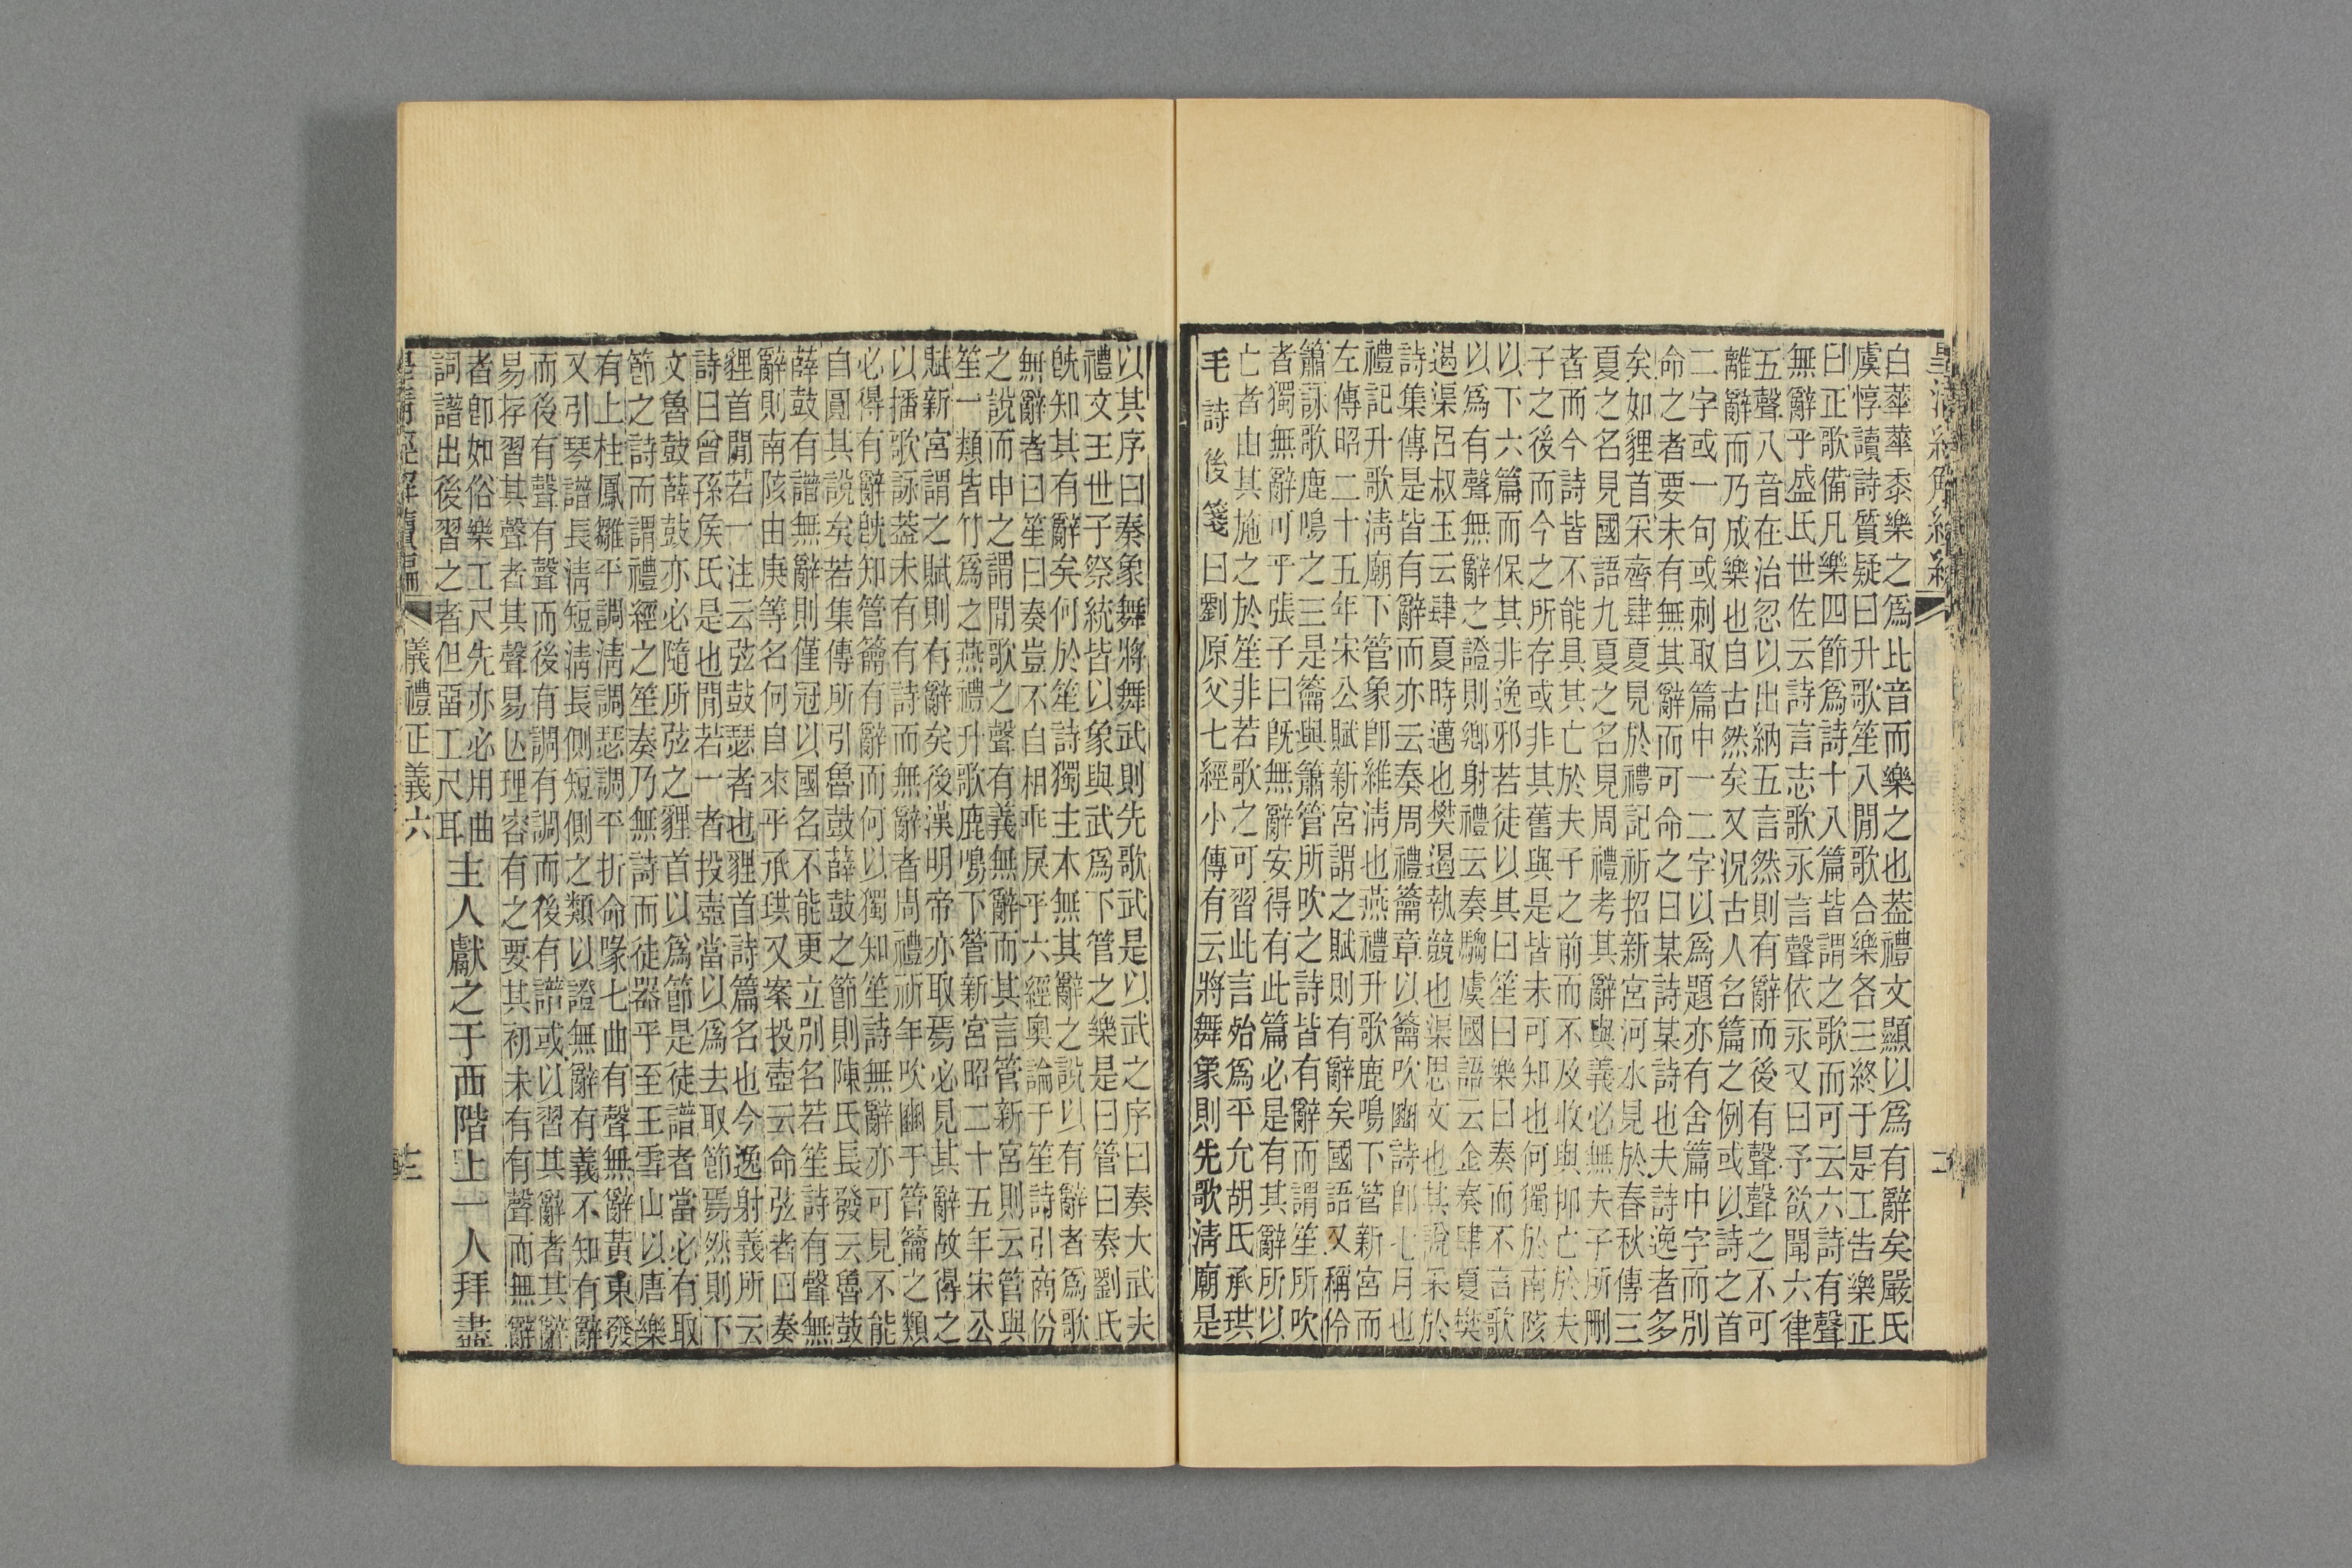 白華華黍樂之爲比音而樂之也葢禮文顯以爲有辭矣嚴氏
虞惇讀詩質疑曰升歌笙入閒歌合樂各三終于是工告樂正
曰正歌備凡樂四節爲詩十八篇皆謂之歌而可云六詩有聲
無辭乎盛氏世佐云詩言志歌永言聲依永又曰予欲聞六律
五聲八音在治忽以出納五言然則有辭而後有聲聲之不可
離辭而乃成樂也自古然矣又況古人名篇之例或以詩之首
二字或一句或刺取篇中一二字以爲題亦有舍篇中字而別
命之者要未有無其辭而可命之曰某詩某詩也夫詩逸者多
矣如貍首采齊肆夏見於禮記祈招新宮河水見於春秋傳三
夏之名見國語九夏之名見周禮考其辭與義必無夫子所刪
者而今詩皆不能具其亡於夫子之前而不及收與抑亡於夫
子之後而今之所存或非其舊與是皆未可知也何獨於南陔
以下六篇而保其非逸邪若徒以其曰笙曰樂曰奏而不言歌
以爲有聲無辭之證則鄉射禮云奏騶虞國語云金奏肆夏樊
遏渠呂叔玉云肆夏時邁也樊遏執競也渠思文也其說采於
詩集傳是皆有辭而亦云奏周禮籥章以籥吹豳詩卽七月也
禮記升歌淸廟下管象卽維淸也燕禮升歌鹿鳴下管新宮而
左傳昭二十五年宋公賦新宮謂之賦則有辭矣國語又稱伶
簫詠歌鹿鳴之三是籥與簫管所吹之詩皆有辭而謂笙所吹
者獨無辭可乎張子曰旣無辭安得有此篇必是有其辭所以
亡者山其施之於笙非若歌之可習此言殆爲平允胡氏承珙
毛詩後箋曰劉原父七經小傳有云將舞象則先歌淸廟是
以其序曰奏象舞將舞武則先歌武是以武之序曰奏大武夫
禮文王世子祭統皆以象與武爲下管之樂是曰管曰奏劉氏
旣知其有辭矣何於笙詩獨主本無其辭之說以有辭者爲歌
無辭者曰笙曰奏豈不自相乖戾乎六經奧論于笙詩引商份
之說而申之謂閒歌之聲有義無辭而其言管新宮則云管與
笙一類皆竹爲之燕禮升歌鹿鳴下管新宮昭二十五年宋公
賦新宮謂之賦則有辭矣後漢明帝亦取焉必見其辭故得之
以播歌詠葢未有有詩而無辭者周禮祈年吹豳于管籥之類
必得有辭旣知管籥有辭而何以獨知笙詩無辭亦可見不能
自圓其說矣若集傳所引魯鼓薛鼓之節則陳氏長發云魯鼓
薛鼓有譜無辭則僅冠以國名不能更立別名若笙詩有聲無
辭則南陔由庚等名何自來乎承珙又案投壺云命弦者曰奏
貍首閒若一注云弦鼓瑟者也貍首詩篇名也今逸射義所云
詩曰曾孫侯氏是也閒若一者投壺當以爲去取節焉然則下
文魯鼓薛鼓亦必隨所弦之貍首以爲節是徒譜者當必有取
節之詩而謂禮經之笙奏乃無詩而徒器乎至王雪山以唐樂
有上柱鳳雛平調淸調瑟調平折命喙七曲有聲無辭黃東發
又引琴譜長淸短淸長側短側之類以證無辭有義不知有辭
而後有聲有聲而後有調有調而後有譜或以習其辭者其辭
易存習其聲者其聲易亾理容有之要其初未有有聲而無辭
者卽如俗樂工尺先亦必用曲
詞譜出後習之者但畱工尺耳 主人獻之于西階上一人拜盡
皇淸經解續編 儀禮正義六 十二